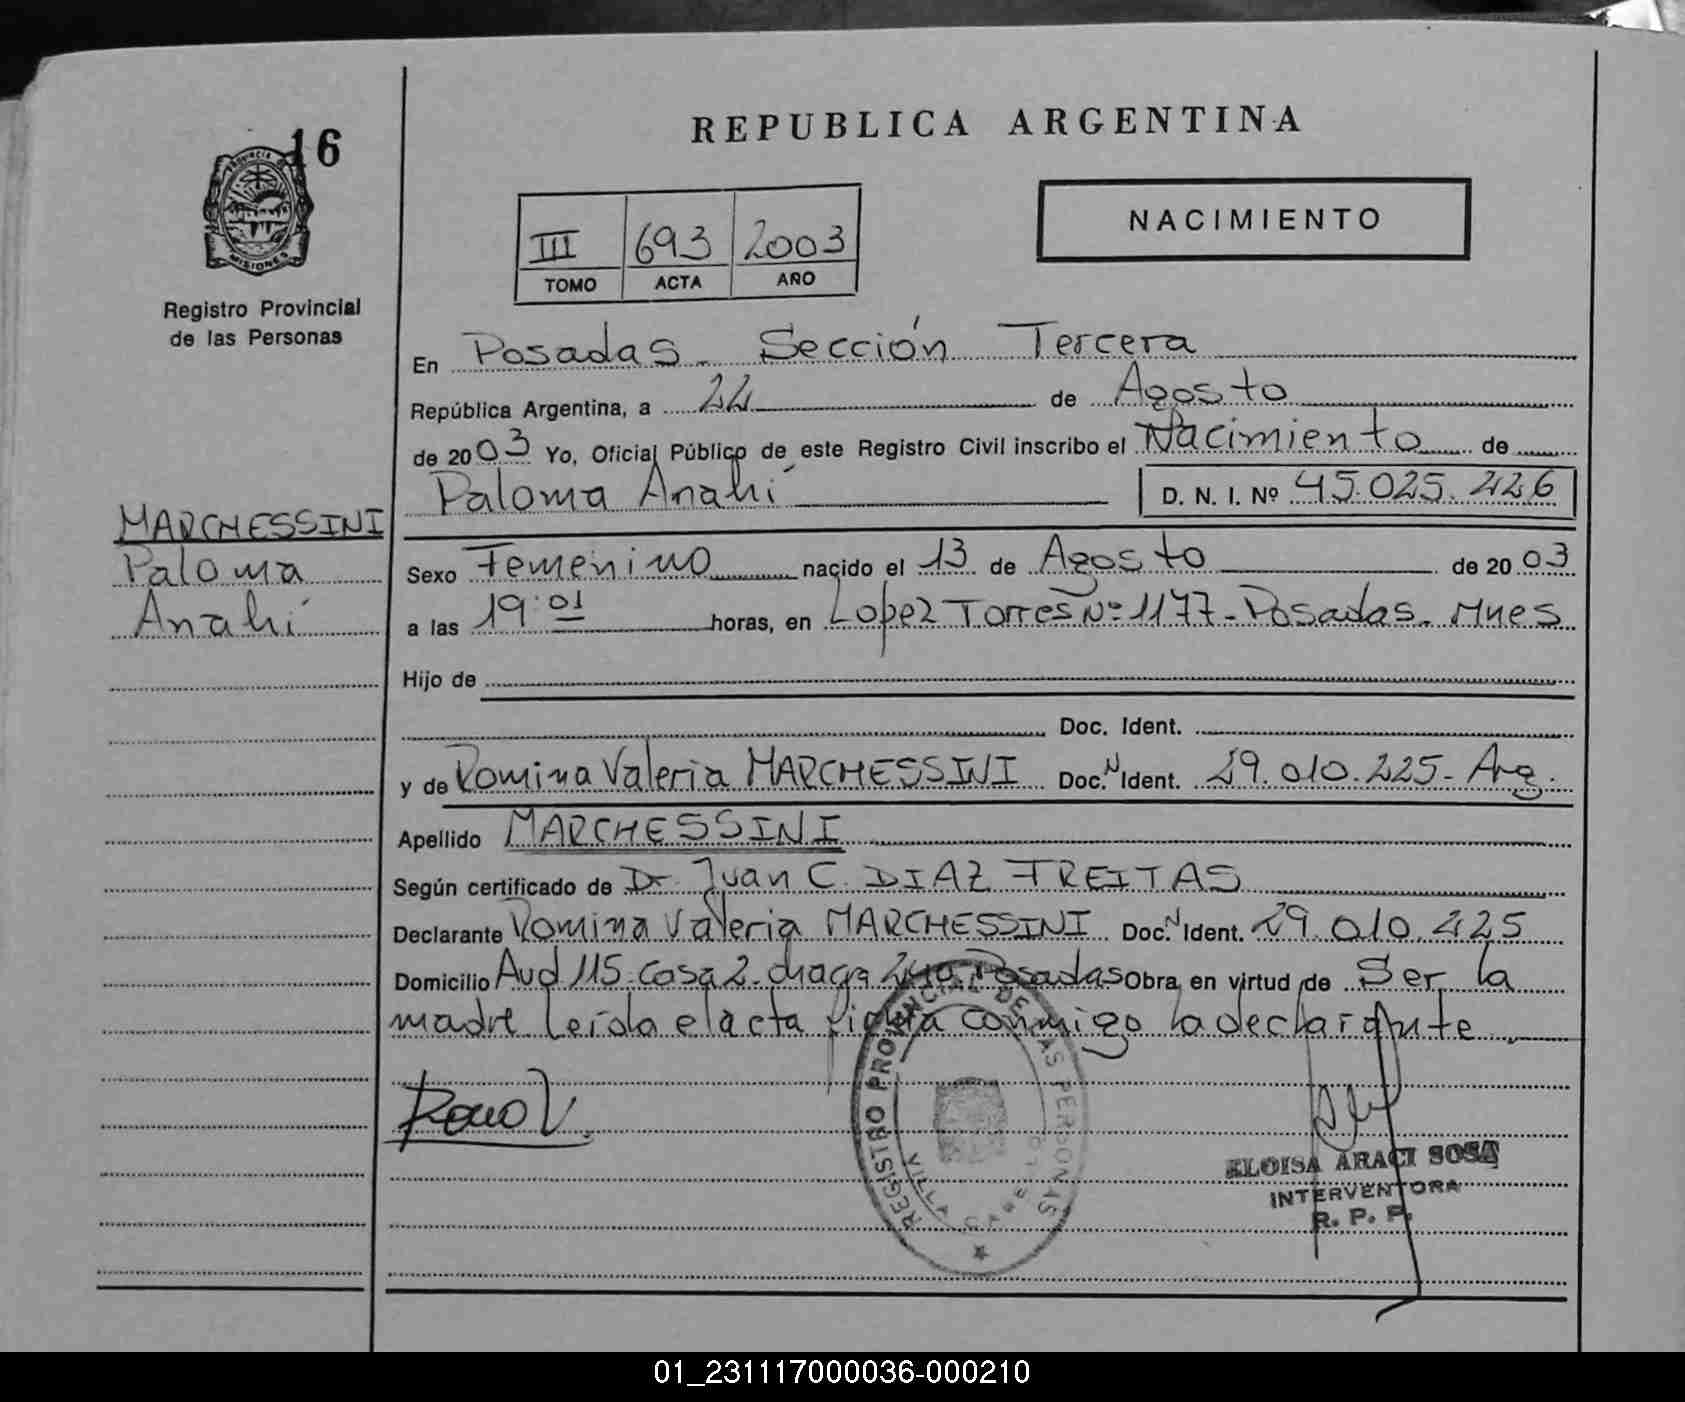 16
REPUBLICA ARGENTINA
PROVINCIA DE
MISIONES
Registro Provincial
de las Personas
III 693 2003
TOMO ACTA AÑO
NACIMIENTO
En Posadas - Sección Tercera
República Argentina, a 22 de Agosto
de 2003 Yo, Oficial Público de este Registro Civil inscribo el Nacimiento de
Paloma Anahí D. N. I. Nº 45.025.226
MARCHESSINI
Paloma
Anahí
Sexo Femenino nacido el 13 de Agosto de 2003
a las 19:01 horas, en Lopez Torres Nº 1177 - Posadas - Mnes
Hijo de
Doc. Ident.
y de Romina Valeria MARCHESSINI Doc. N Ident. 29.010.225 - Arg.
Apellido MARCHESSINI
Según certificado de Dr. Juan C. DIAZ FREITAS
Declarante Romina Valeria MARCHESSINI Doc. N Ident. 29.010.225
Domicilio Avd 115 Casa 2 - chacra Posadas Obra en virtud de Ser la
madre leída el acta firma conmigo la declarante
REGISTRO PROVINCIAL DE LAS PERSONAS
VILLA CABELLO
ELOISA ARACI SOSA
INTERVENTORA
R. P. P.
01_231117000036-000210